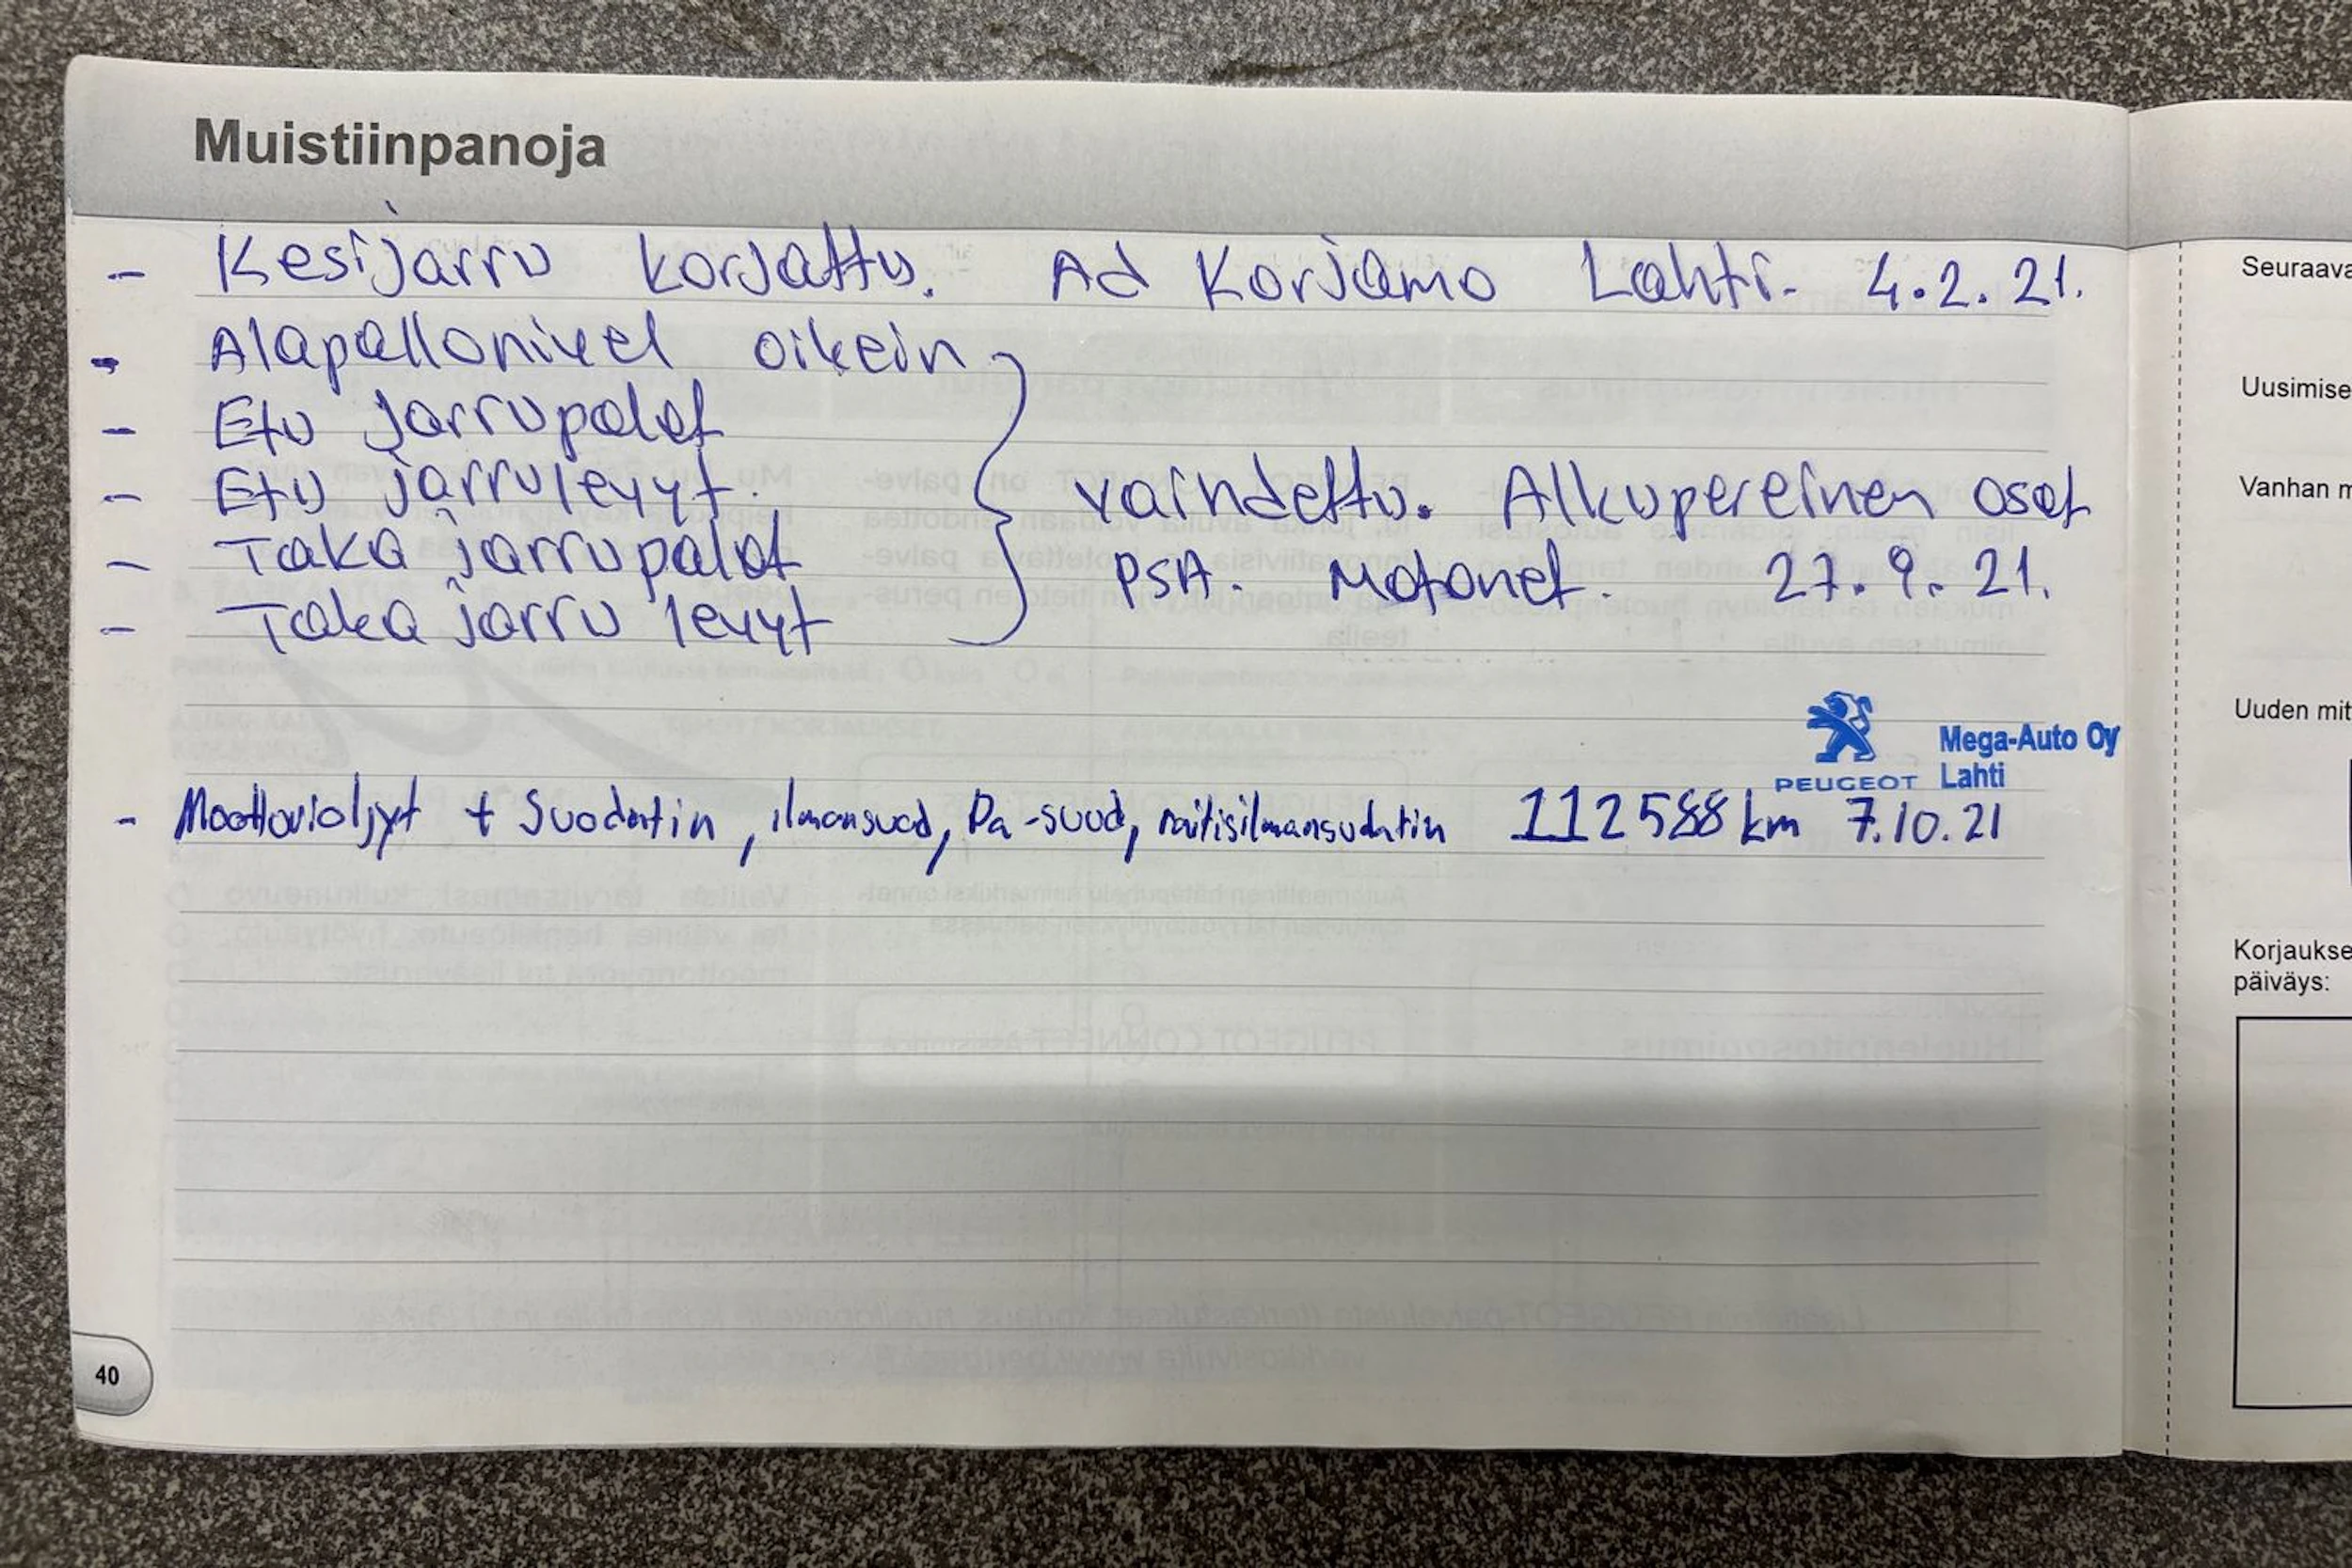 Muistiinpanoja
- Kesijarru korjattu. Ad Korjamo Lahti. 4.2.21.
- Alapallonivel oikein
- Etu jarrupalat
- Etu jarrulevyt.
- Taka jarrupalat
- Taka jarru levyt
vaihdettu. Alkupereinen osat
PSA. Motonet. 27.9.21.
PEUGEOT
Mega-Auto Oy
Lahti
- Moottoriöljyt + Suodatin, ilmansuod, Pa-suod, raitisilmansudatin 112588 km 7.10.21
40
Seuraava
Uusimise
Vanhan m
Uuden mit
Korjaukse
päiväys: